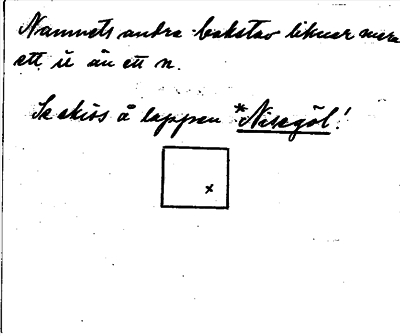 Namnets andra bokstav liknar mera
ett u än ett n.
Se skiss å lappen *Nisegöl!
x